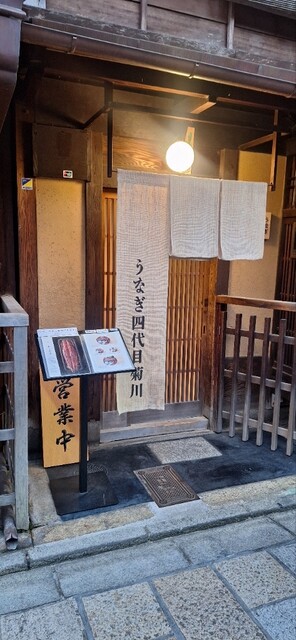 うなぎ四代目菊川
営業中